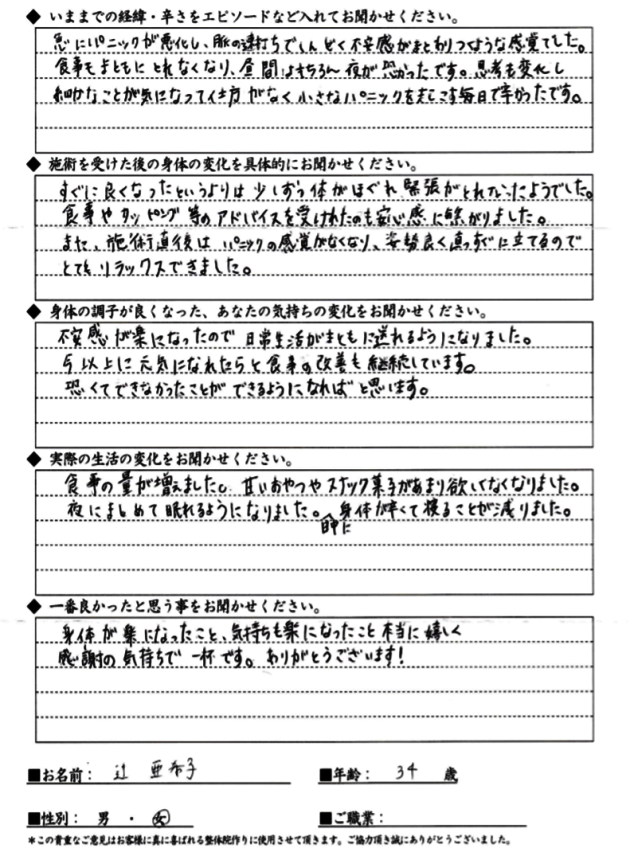 ◆ いままでの経緯・辛さをエピソードなど入れてお聞かせください。
急にパニックが悪化し、脈の速打ちでしんどく不安感がまとわりつくような感覚でした。
食事もまともにとれなくなり、昼間はもちろん夜が恐かったです。思考も変化し
細かなことが気になって仕方がなく小さなパニックを起こす毎日で辛かったです。
◆ 施術を受けた後の身体の変化を具体的にお聞かせください。
すぐに良くなったというよりは少しずつ体がほぐれ緊張がとれていったようでした。
食事やタッピング等のアドバイスを受けれたのも安心感に繋がりました。
また、施術直後はパニックの感覚がなくなり、姿勢良く真っすぐに立てるので
とてもリラックスできました。
◆ 身体の調子が良くなった、あなたの気持ちの変化をお聞かせください。
不安感が楽になったので日常生活がまともに送れるようになりました。
今以上に元気になれたらと食事の改善も継続しています。
恐くてできなかったことができるようになればと思います。
◆ 実際の生活の変化をお聞かせください。
食事の量が増えましたし、甘いおやつやスナック菓子があまり欲しくなくなりました。
夜にまとめて眠れるようになりました。日中に身体が辛くて横ることが減りました。
◆ 一番良かったと思う事をお聞かせください。
身体が楽になったこと、気持ちも楽になったこと本当に嬉しく
感謝の気持ちで一杯です。ありがとうございます!
■お名前: 辻 亜希子 ■年齢: 34 歳
■性別: 男 ・ 女 ■ご職業:
*この貴重なご意見はお客様に真に喜ばれる整体院作りに使用させて頂きます。ご協力頂き誠にありがとうございました。